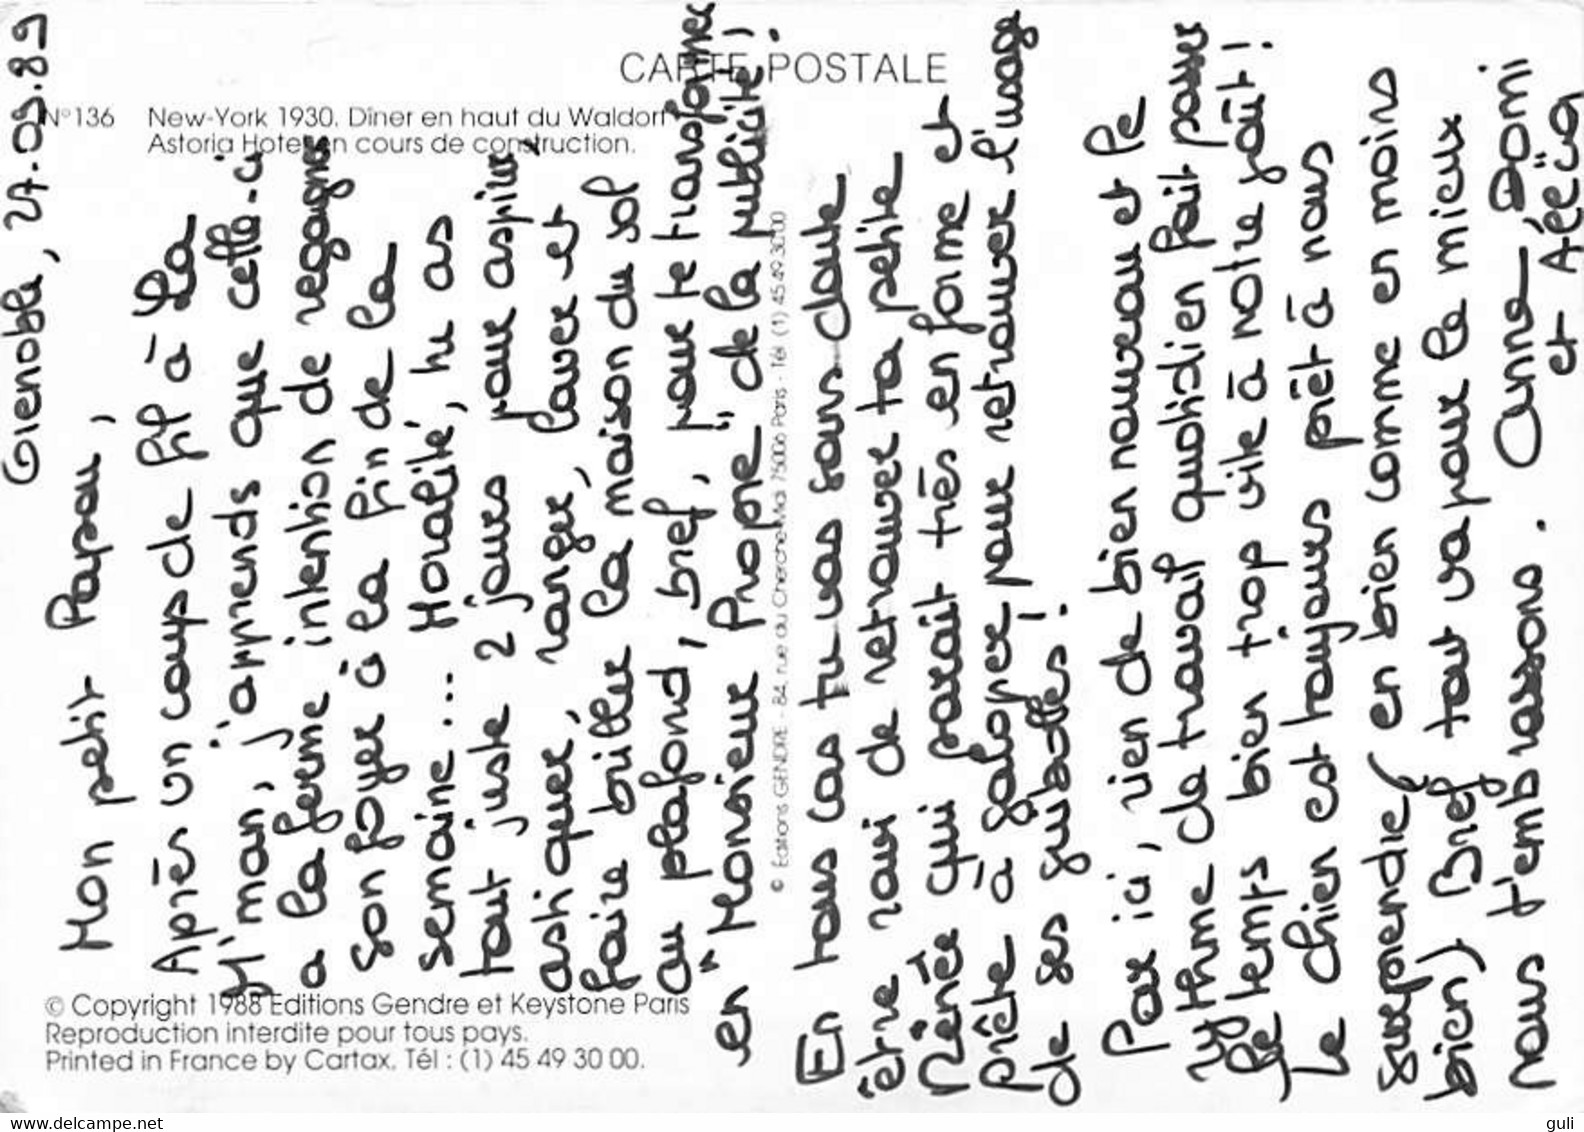 CARTE POSTALE
N°136 New-York 1930. Dîner en haut du Waldorf
Astoria Hotel en cours de construction.
Grenoble, 27.09.89
Mon petit Papou,
Après un coup de fil à la
M'man, j'apprends que celle-ci
a la ferme intention de regagner
son foyer à la fin de la
semaine... Moralité, tu as
tout juste 2 jours pour aspirer,
astiquer, ranger, laver et
faire briller la maison du sol
au plafond, bref, pour te transformer
en "Monsieur Propre" de la publicité !
En tous cas tu vas sans doute
être ravi de retrouver ta petite
Mémée qui paraît très en forme et
prête à galoper pour retrouver l'usage
de ses gubolles !
Par ici, rien de bien nouveau et le
rythme de travail quotidien fait passer
le temps bien trop vite à notre goût !
Le chien est toujours prêt à nous
surprendre (en bien comme en moins
bien). Bref tout va pour le mieux
nous t'embrassons. Anne, Domi
et
© Editions GENDRE - 84, rue du Cherche-Midi 75006 Paris - Tél (1) 45 49 30 00
© Copyright 1988 Editions Gendre et Keystone Paris
Reproduction interdite pour tous pays.
Printed in France by Cartax. Tél : (1) 45 49 30 00.
www.delcampe.net
guli